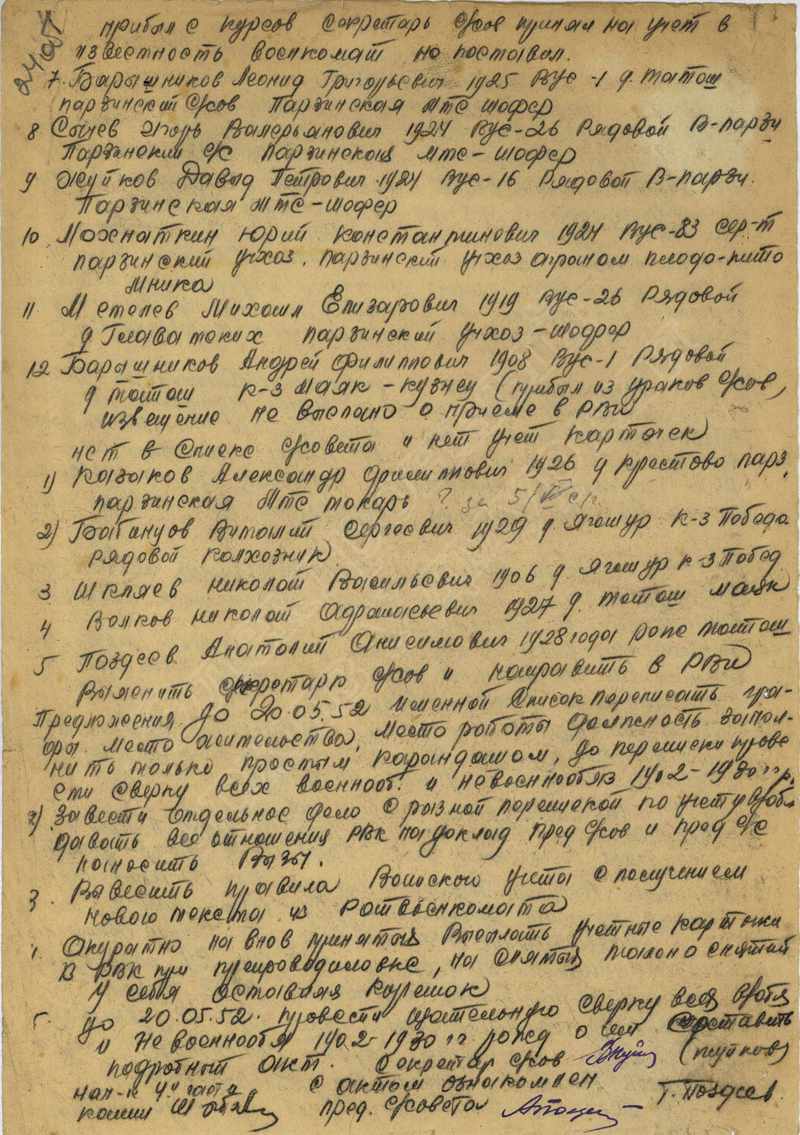 прибыл с курсов секретарь с/сов принял на учет в
известность военкомат не поставил.
7. Барышников Леонид Григорьевич 1925 ВУС-1 д. Татош
парзинский с/сов Парзинская МТС шофер
8 Сысуев Игорь Валерьянович 1924 ВУС-26 Рядовой В-парзи
Парзинский с/с Парзинской МТС-шофер
9 Жуйков Давыд Петрович 1924 ВУС-16 Рядовой В-парзи.
Парзинская МТС-шофер
10. Мохнаткин Юрий Константинович 1924 ВУС-83 сер-т
парзинский учхоз. парзинский учхоз агроном плодо-пито
мника
11 Метелев Михаил Елизарович 1919 ВУС-26 Рядовой
д Главатских парзинский учхоз-шофер
12 Барышников Андрей Филиппович 1908 ВУС-1 Рядовой
д Татош к-з Маяк-кузнец (прибыл из ураков с/сов,
извещение не выслано о приеме в РВК
нет в списке с/совета и нет учет карточек
1) Казаков Александр Филиппович 1926 д крестово парз.
парзинская МТС токарь ? за 5/
2) Бабинцов Виталий Сергеевич 1929 д Ягошур к-з Победа
рядовой колхозник
3 Шкляев Николай Васильевич 1906 д Ягошур к-з Побед
4 Волков Николай Афанасьевич 1927 д. Татош Маяк
5 Поздеев Анатолий Анисимович 1928 года рожд Татош
Выяснить секретарю с/сов и направить в РВК
Предложения. До 20.05.52 именной список переписать
место жительства, место работы должность запол-
нить только простым карандашом, до переписки прове
сти сверку всех военнооб. и невоеннообяз 1902-1930 г.р.
2) Завести отдельное дело с разной перепиской по учету в/об
давать все отношения РВК на доклад пред с/сов и пред с/с
наносить Визы.
3. Вывесить правила Воинского учета с получением
нового текста из Райвоенкомата
4. Акуратно на внов принятых Высылать учетные карточки
в РВК при препроводиловке, на снятых талоны снятий
у себя оставляя корешок
5. до 20.05.52. провести тщательную сверку всех в/обяз
и не военнообяз 1902-1930 гг рожд о чем составить
подробный акт. Секретар с/сов (жуйков)
нач-к 4 части с актом ознакомлен
пред. с/совета Т. Поздеев.